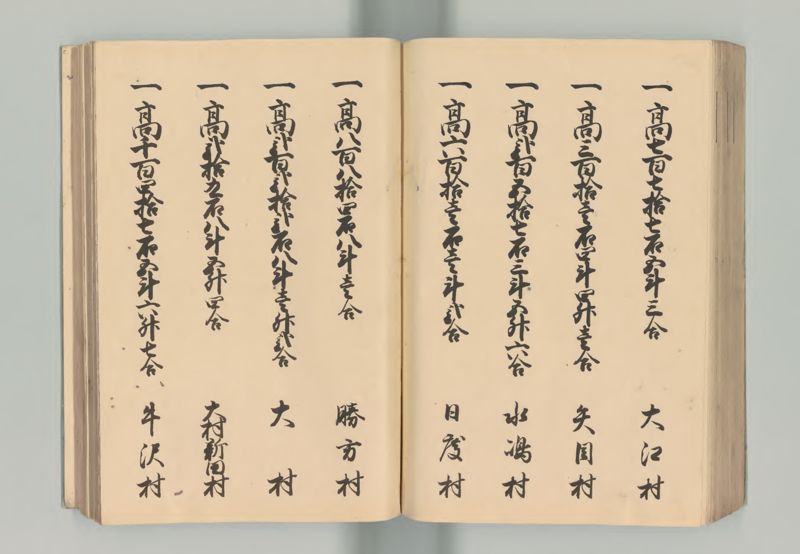 一高七百七拾七石五斗三合 大江村
一高三百拾壱石四斗四升壱合 矢目村
一高弐百五拾七石三斗五升六合 水嶋村
一高六百拾壱石壱斗弐合 日度村
一高八百八拾四石八斗壱合 勝方村
一高弐百弐拾弐石八斗壱升弐合 大村
一高弐拾九石八斗五升四合 大村新田村
一高千百四拾七石五斗六升七合 牛沢村